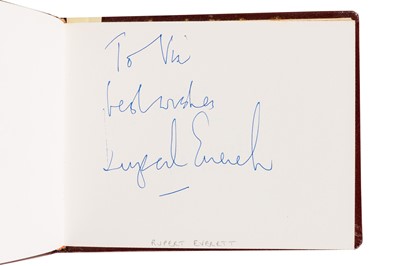 To Viv
best wishes
Rupert Everett
RUPERT EVERETT